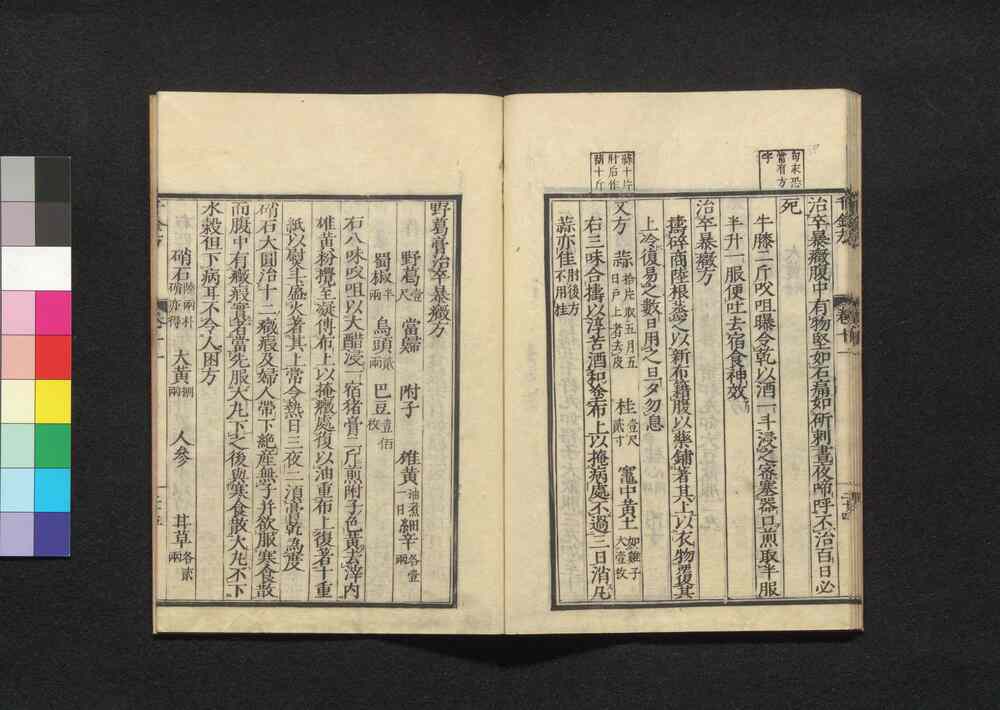 句末恐
當有方
字
治卒暴癥腹中有物堅如石痛如斫刺晝夜啼呼不治百日必
死
牛膝二斤㕮咀曝令乾以酒一斗浸之密塞器口煎取半服
半升一服便吐去宿食神效
治卒暴癥方
擣碎商陸根蒸之以新布藉腹以藥鋪著其上以衣物覆其
上冷復易之數日用之旦夕勿息
蒜十片
肘后作
蒜十斤
又方
蒜拾片取五月五日戶上者去皮 桂壹尺貳寸 竈中黃土如雞子大壹枚
右三味合擣以淳苦酒和塗布上以掩病處不過三日消凡
蒜亦佳肘後方不用桂
野葛膏治卒暴癥方
野葛壹尺 當歸 附子 雄黃油煮一日 細辛各壹兩
蜀椒半兩 烏頭貳兩 巴豆壹佰枚
右八味㕮咀以大醋浸一宿猪膏二斤煎附子色黃去滓內
雄黃粉攪至凝傅布上以掩癥處復以油重布上復著十重
紙以熨斗盛火著其上常令熱日三夜二須膏乾為度
硝石大圓治十二癥瘕及婦人帶下絕產無子并欲服寒食散
而腹中有癥瘕實者當先服大丸下之後與寒食散大丸不下
水穀但下病耳不令人困方
硝石陸兩朴硝亦得 大黃捌兩 人參 甘草各貳兩